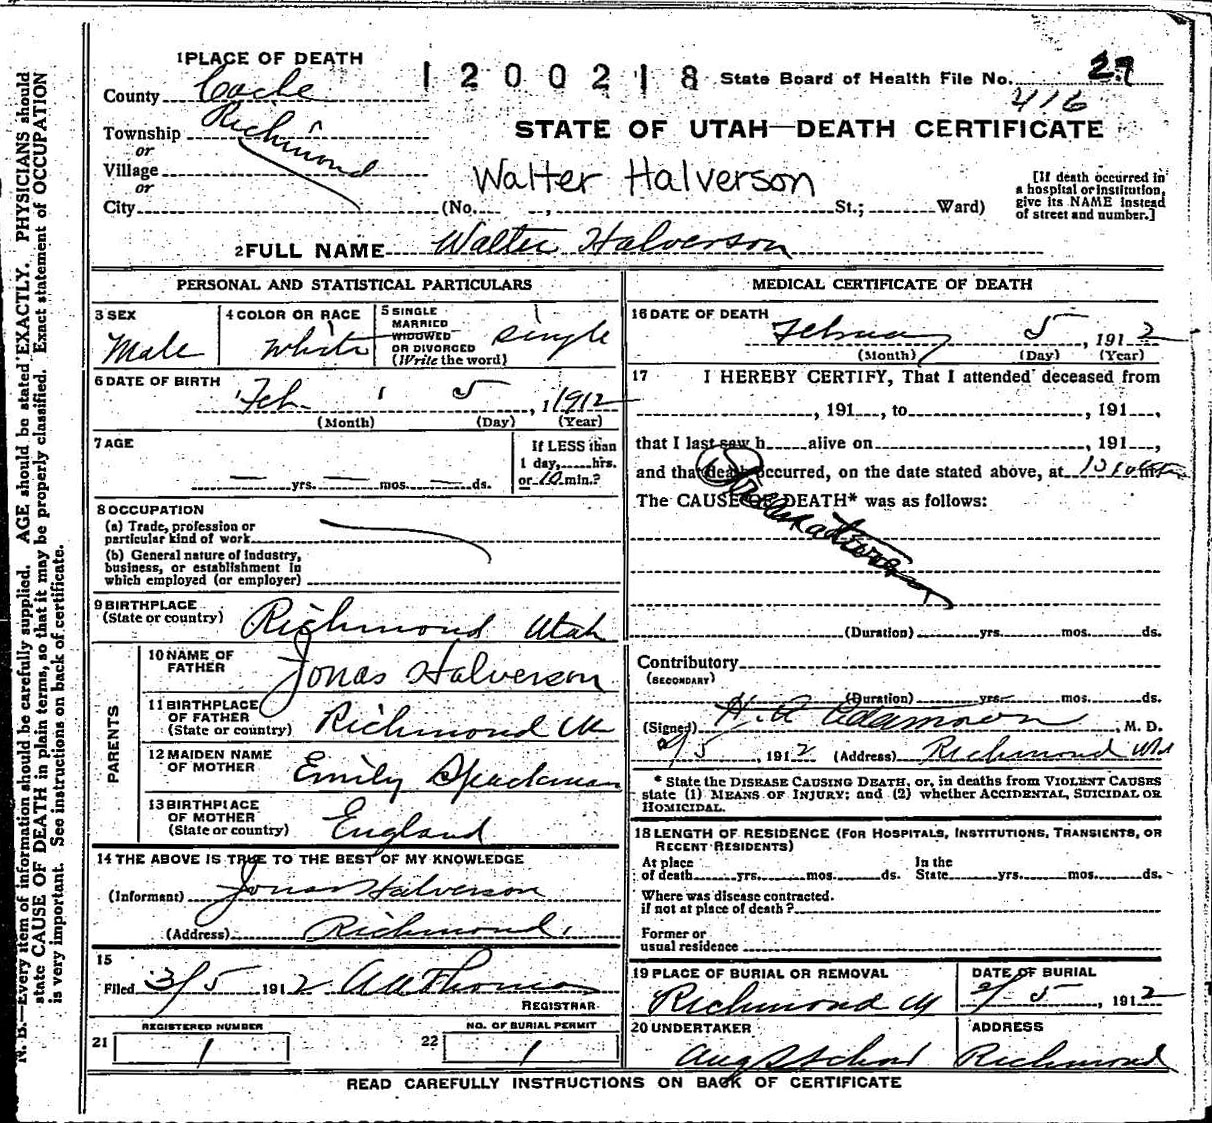 1 PLACE OF DEATH
1200218 State Board of Health File No. 27
416
County Cache
Township Richmond
or
Village
or
City
STATE OF UTAH—DEATH CERTIFICATE
Walter Halverson
(No. , St.; Ward)
[If death occurred in
a hospital or institution,
give its NAME instead
of street and number.]
2 FULL NAME Walter Halverson
PERSONAL AND STATISTICAL PARTICULARS
3 SEX
Male
4 COLOR OR RACE
White
5 SINGLE
MARRIED
WIDOWED
OR DIVORCED
(Write the word)
Single
6 DATE OF BIRTH
Feb 5, 1912
(Month) (Day) (Year)
7 AGE
— yrs. — mos. — ds.
If LESS than
1 day, hrs.
or 10 min.?
8 OCCUPATION
(a) Trade, profession or
particular kind of work
(b) General nature of industry,
business, or establishment in
which employed (or employer)
9 BIRTHPLACE
(State or country)
Richmond Utah
PARENTS
10 NAME OF
FATHER
Jonas Halverson
11 BIRTHPLACE
OF FATHER
(State or country)
Richmond U
12 MAIDEN NAME
OF MOTHER
Emily Spackman
13 BIRTHPLACE
OF MOTHER
(State or country)
England
14 THE ABOVE IS TRUE TO THE BEST OF MY KNOWLEDGE
(Informant) Jonas Halverson
(Address) Richmond,
15
Filed 3/5 1912 Thomas
REGISTRAR
REGISTERED NUMBER
21 1
NO. OF BURIAL PERMIT
22 1
MEDICAL CERTIFICATE OF DEATH
16 DATE OF DEATH
February 5, 1912
(Month) (Day) (Year)
17 I HEREBY CERTIFY, That I attended deceased from
, 191 , to , 191 ,
that I last saw h alive on , 191 ,
and that death occurred, on the date stated above, at
The CAUSE OF DEATH* was as follows:
(Duration) yrs. mos. ds.
Contributory
(SECONDARY)
(Duration) yrs. mos. ds.
(Signed) H. A. Adamson, M. D.
2/5, 1912 (Address) Richmond Utah
* State the DISEASE CAUSING DEATH, or, in deaths from VIOLENT CAUSES
state (1) MEANS OF INJURY; and (2) whether ACCIDENTAL, SUICIDAL OR
HOMICIDAL.
18 LENGTH OF RESIDENCE (FOR HOSPITALS, INSTITUTIONS, TRANSIENTS, OR
RECENT RESIDENTS)
At place
of death yrs. mos. ds.
In the
State yrs. mos. ds.
Where was disease contracted.
if not at place of death?
Former or
usual residence
19 PLACE OF BURIAL OR REMOVAL
Richmond U
DATE OF BURIAL
2/5, 1912
20 UNDERTAKER
Aug
ADDRESS
Richmond
READ CAREFULLY INSTRUCTIONS ON BACK OF CERTIFICATE
N. B.—Every item of information should be carefully supplied. AGE should be stated EXACTLY. PHYSICIANS should
state CAUSE OF DEATH in plain terms, so that it may be properly classified. Exact statement of OCCUPATION
is very important. See instructions on back of certificate.